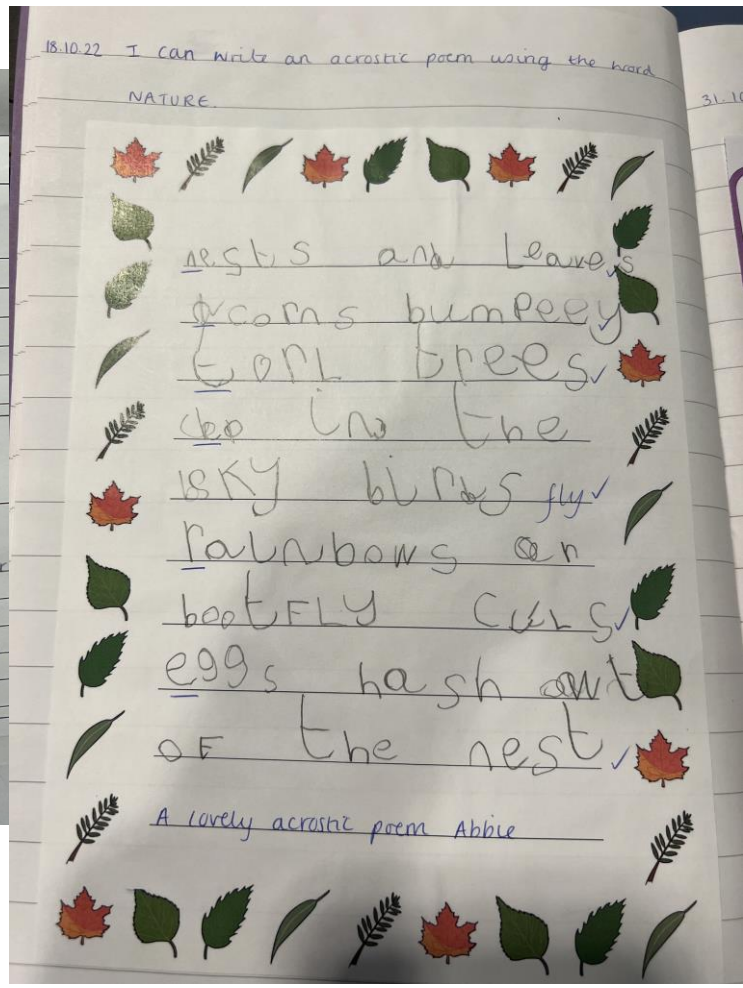 18.10.22 I can write an acrostic poem using the word
NATURE.
31.10
nests and leaves
acorns bumpeey
torl trees
up in the
sky birds fly
rainbows an
bootFLY CULS
eggs hash out
oF the nest
A lovely acrostic poem Abbie